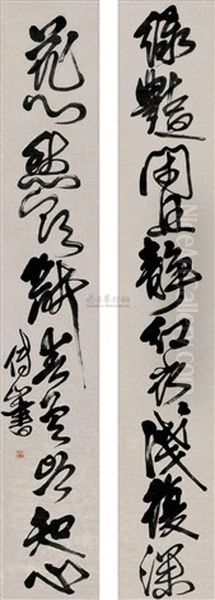 綠豔閒且靜紅衣淺復深
花心愁欲斷春色豈知心
傅山書